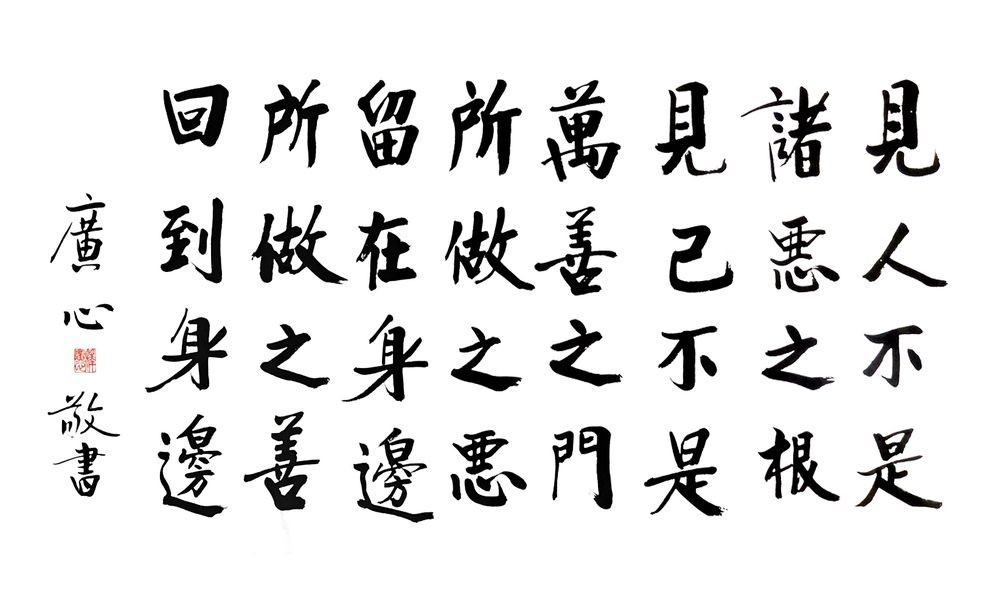 見人不是
諸悪之根
見己不是
萬善之門
所做之悪
留在身邊
所做之善
回到身邊
廣心
敬書